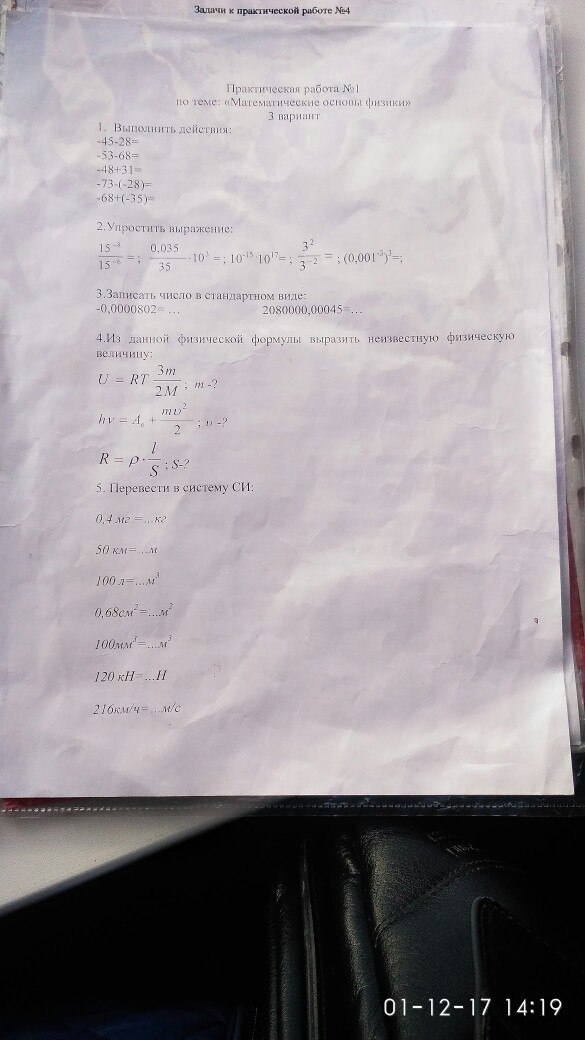 Задачи к практической работе №4
Практическая работа №1
по теме: «Математические основы физики»
3 вариант
1. Выполнить действия:
-45-28=
-53-68=
-48+31=
-73-(-28)=
-68+(-35)=
2.Упростить выражение:
15⁻⁸/15⁻⁶ = ; 0,035/35 ·10³ =; 10⁻¹⁵·10¹⁷= ; 3²/3⁻² = ; (0,001⁻³)³=;
3.Записать число в стандартном виде:
-0,0000802= … 2080000,00045=…
4.Из данной физической формулы выразить неизвестную физическую
величину:
U = RT 3m/2M ; m -?
hν = Aв + mυ²/2 ; υ -?
R = ρ · l/S ; S-?
5. Перевести в систему СИ:
0,4 мг =...кг
50 км=...м
100 л=...м³
0,68см²=...м²
100мм³=...м³
120 кН=...Н
216км/ч=...м/с
01-12-17 14:19